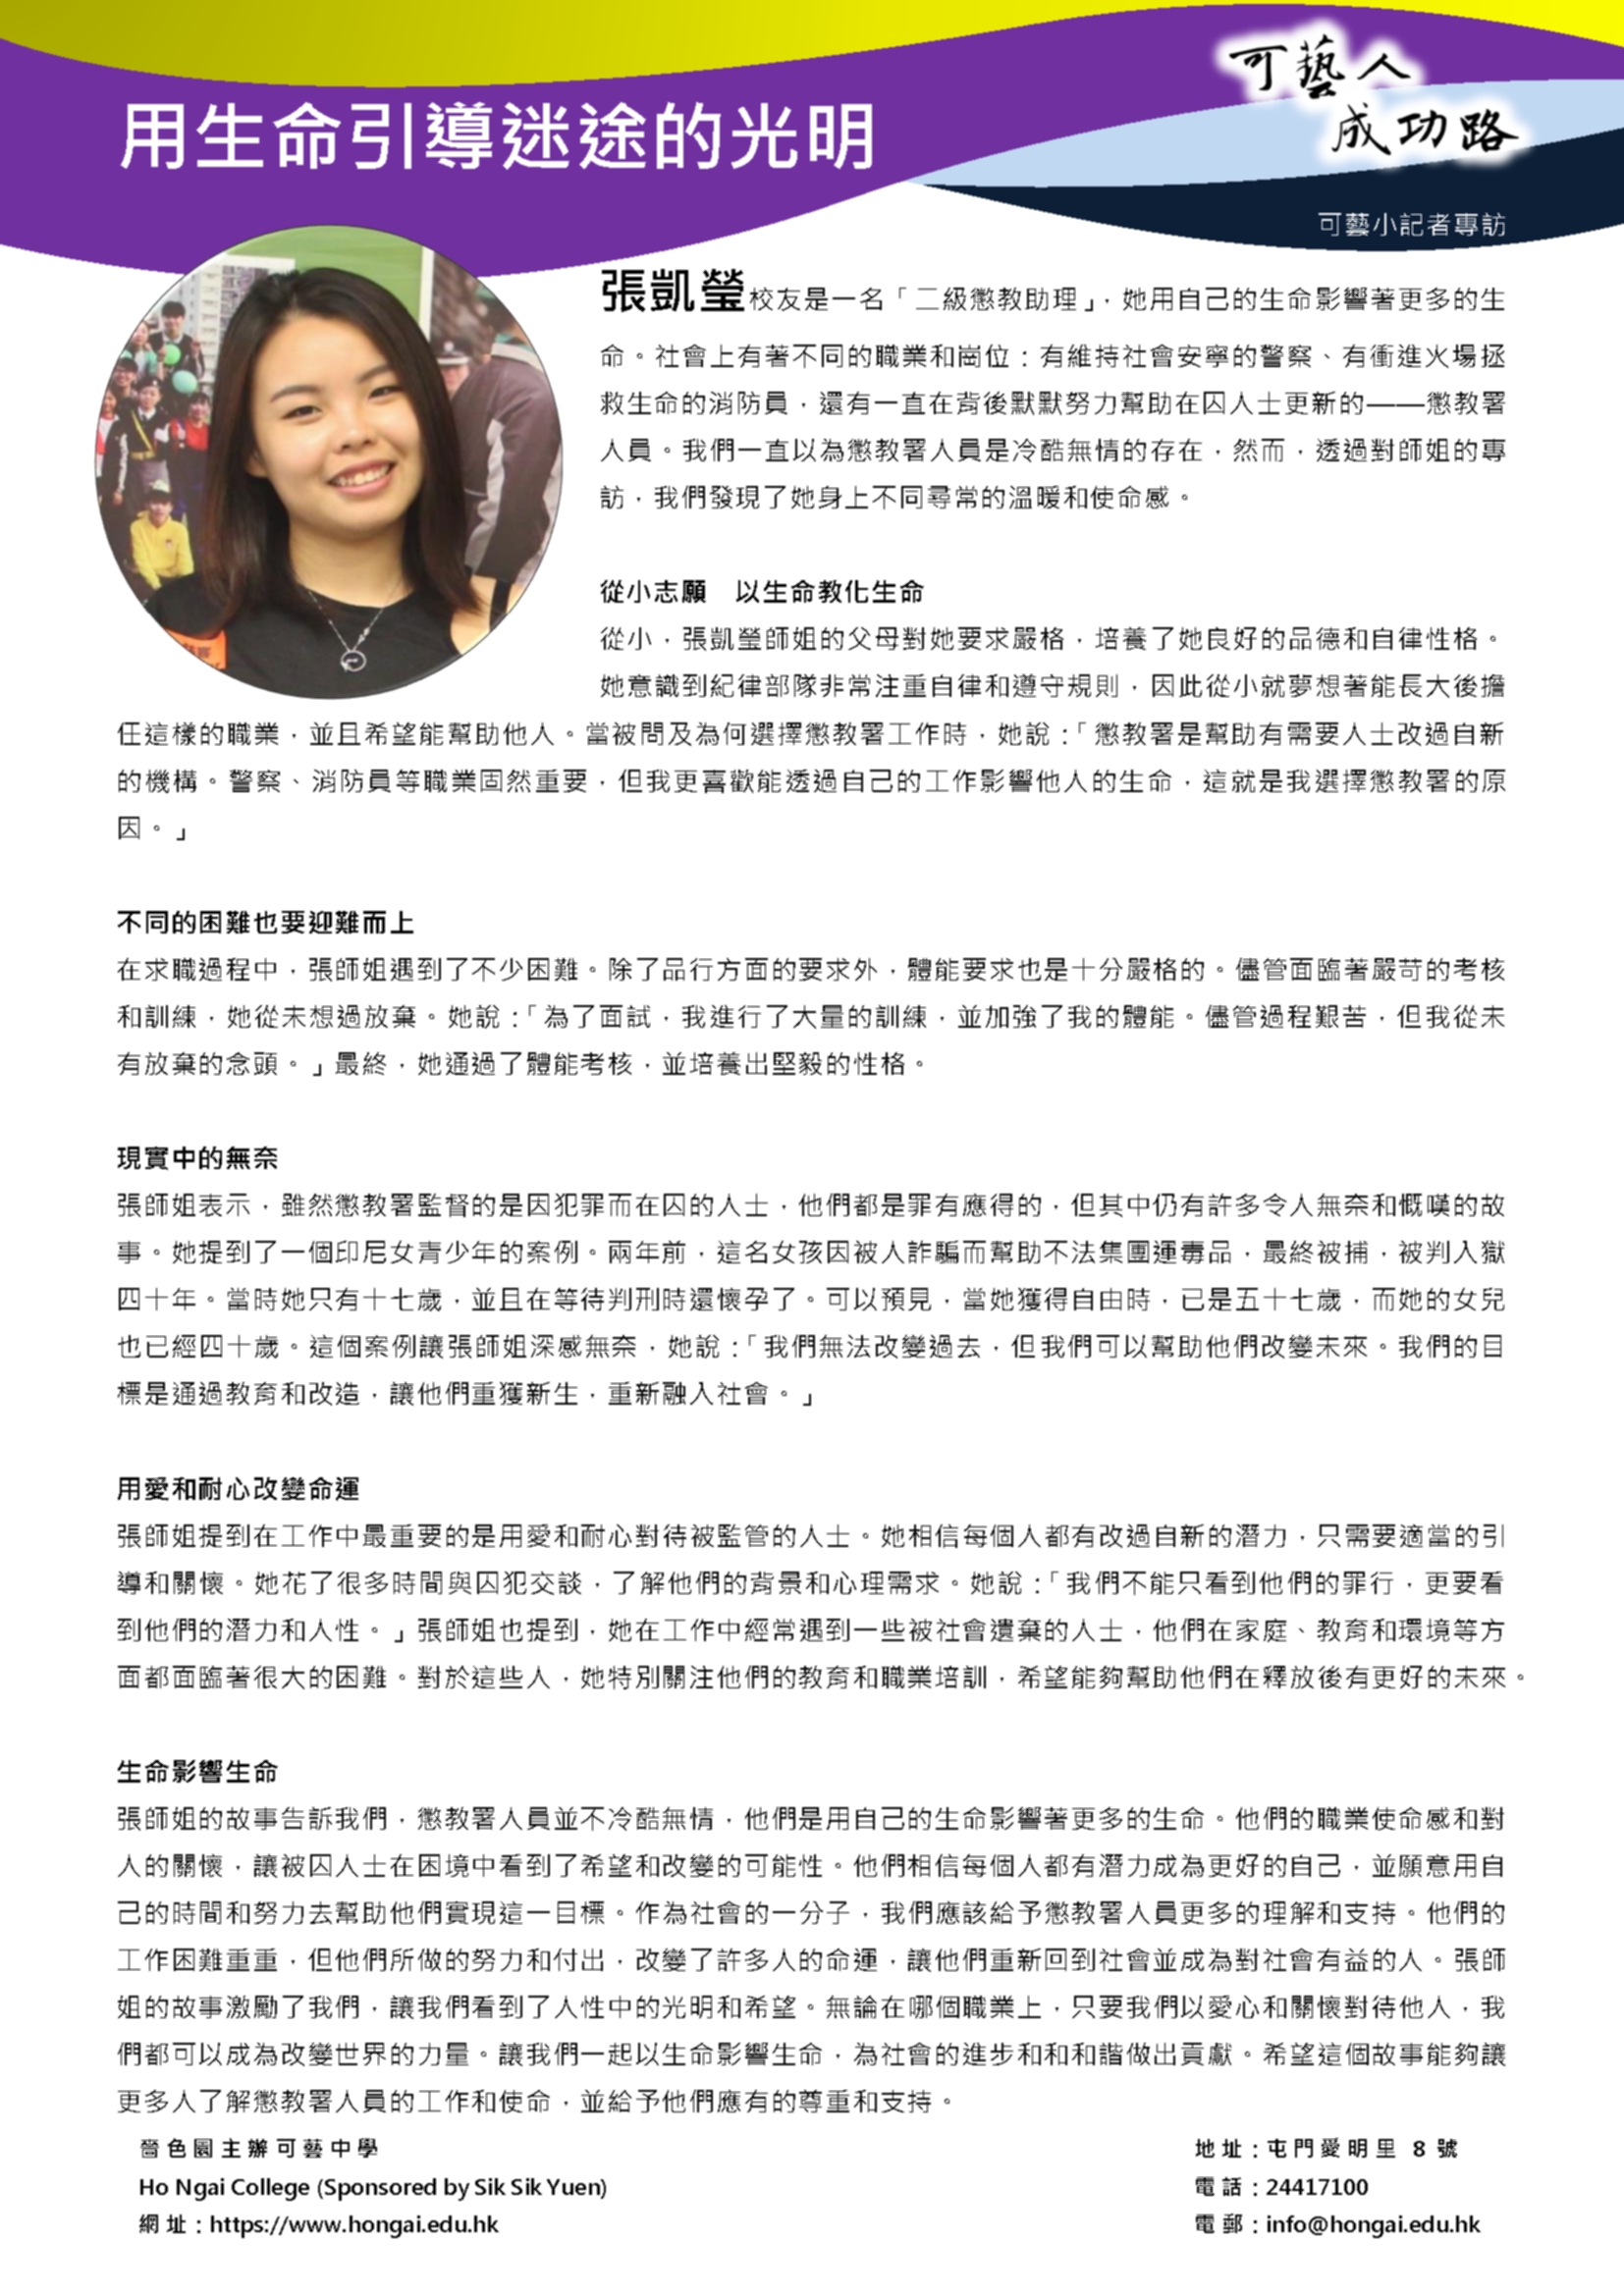 可藝人
成功路
用生命引導迷途的光明
可藝小記者專訪
張凱瑩校友是一名「二級懲教助理」，她用自己的生命影響著更多的生
命。社會上有著不同的職業和崗位：有維持社會安寧的警察、有衝進火場拯
救生命的消防員，還有一直在背後默默努力幫助在囚人士更新的——懲教署
人員。我們一直以為懲教署人員是冷酷無情的存在，然而，透過對師姐的專
訪，我們發現了她身上不同尋常的溫暖和使命感。
從小志願　以生命教化生命
從小，張凱瑩師姐的父母對她要求嚴格，培養了她良好的品德和自律性格。
她意識到紀律部隊非常注重自律和遵守規則，因此從小就夢想著能長大後擔
任這樣的職業，並且希望能幫助他人。當被問及為何選擇懲教署工作時，她說：「懲教署是幫助有需要人士改過自新
的機構。警察、消防員等職業固然重要，但我更喜歡能透過自己的工作影響他人的生命，這就是我選擇懲教署的原
因。」
不同的困難也要迎難而上
在求職過程中，張師姐遇到了不少困難。除了品行方面的要求外，體能要求也是十分嚴格的。儘管面臨著嚴苛的考核
和訓練，她從未想過放棄。她說：「為了面試，我進行了大量的訓練，並加強了我的體能。儘管過程艱苦，但我從未
有放棄的念頭。」最終，她通過了體能考核，並培養出堅毅的性格。
現實中的無奈
張師姐表示，雖然懲教署監督的是因犯罪而在囚的人士，他們都是罪有應得的，但其中仍有許多令人無奈和慨嘆的故
事。她提到了一個印尼女青少年的案例。兩年前，這名女孩因被人詐騙而幫助不法集團運毒品，最終被捕，被判入獄
四十年。當時她只有十七歲，並且在等待判刑時還懷孕了。可以預見，當她獲得自由時，已是五十七歲，而她的女兒
也已經四十歲。這個案例讓張師姐深感無奈，她說：「我們無法改變過去，但我們可以幫助他們改變未來。我們的目
標是通過教育和改造，讓他們重獲新生，重新融入社會。」
用愛和耐心改變命運
張師姐提到在工作中最重要的是用愛和耐心對待被監管的人士。她相信每個人都有改過自新的潛力，只需要適當的引
導和關懷。她花了很多時間與囚犯交談，了解他們的背景和心理需求。她說：「我們不能只看到他們的罪行，更要看
到他們的潛力和人性。」張師姐也提到，她在工作中經常遇到一些被社會遺棄的人士，他們在家庭、教育和環境等方
面都面臨著很大的困難。對於這些人，她特別關注他們的教育和職業培訓，希望能夠幫助他們在釋放後有更好的未來。
生命影響生命
張師姐的故事告訴我們，懲教署人員並不冷酷無情，他們是用自己的生命影響著更多的生命。他們的職業使命感和對
人的關懷，讓被囚人士在困境中看到了希望和改變的可能性。他們相信每個人都有潛力成為更好的自己，並願意用自
己的時間和努力去幫助他們實現這一目標。作為社會的一分子，我們應該給予懲教署人員更多的理解和支持。他們的
工作困難重重，但他們所做的努力和付出，改變了許多人的命運，讓他們重新回到社會並成為對社會有益的人。張師
姐的故事激勵了我們，讓我們看到了人性中的光明和希望。無論在哪個職業上，只要我們以愛心和關懷對待他人，我
們都可以成為改變世界的力量。讓我們一起以生命影響生命，為社會的進步和和和諧做出貢獻。希望這個故事能夠讓
更多人了解懲教署人員的工作和使命，並給予他們應有的尊重和支持。
嗇色園主辦可藝中學
Ho Ngai College (Sponsored by Sik Sik Yuen)
網址：https://www.hongai.edu.hk
地址：屯門愛明里 8 號
電話：24417100
電郵：info@hongai.edu.hk